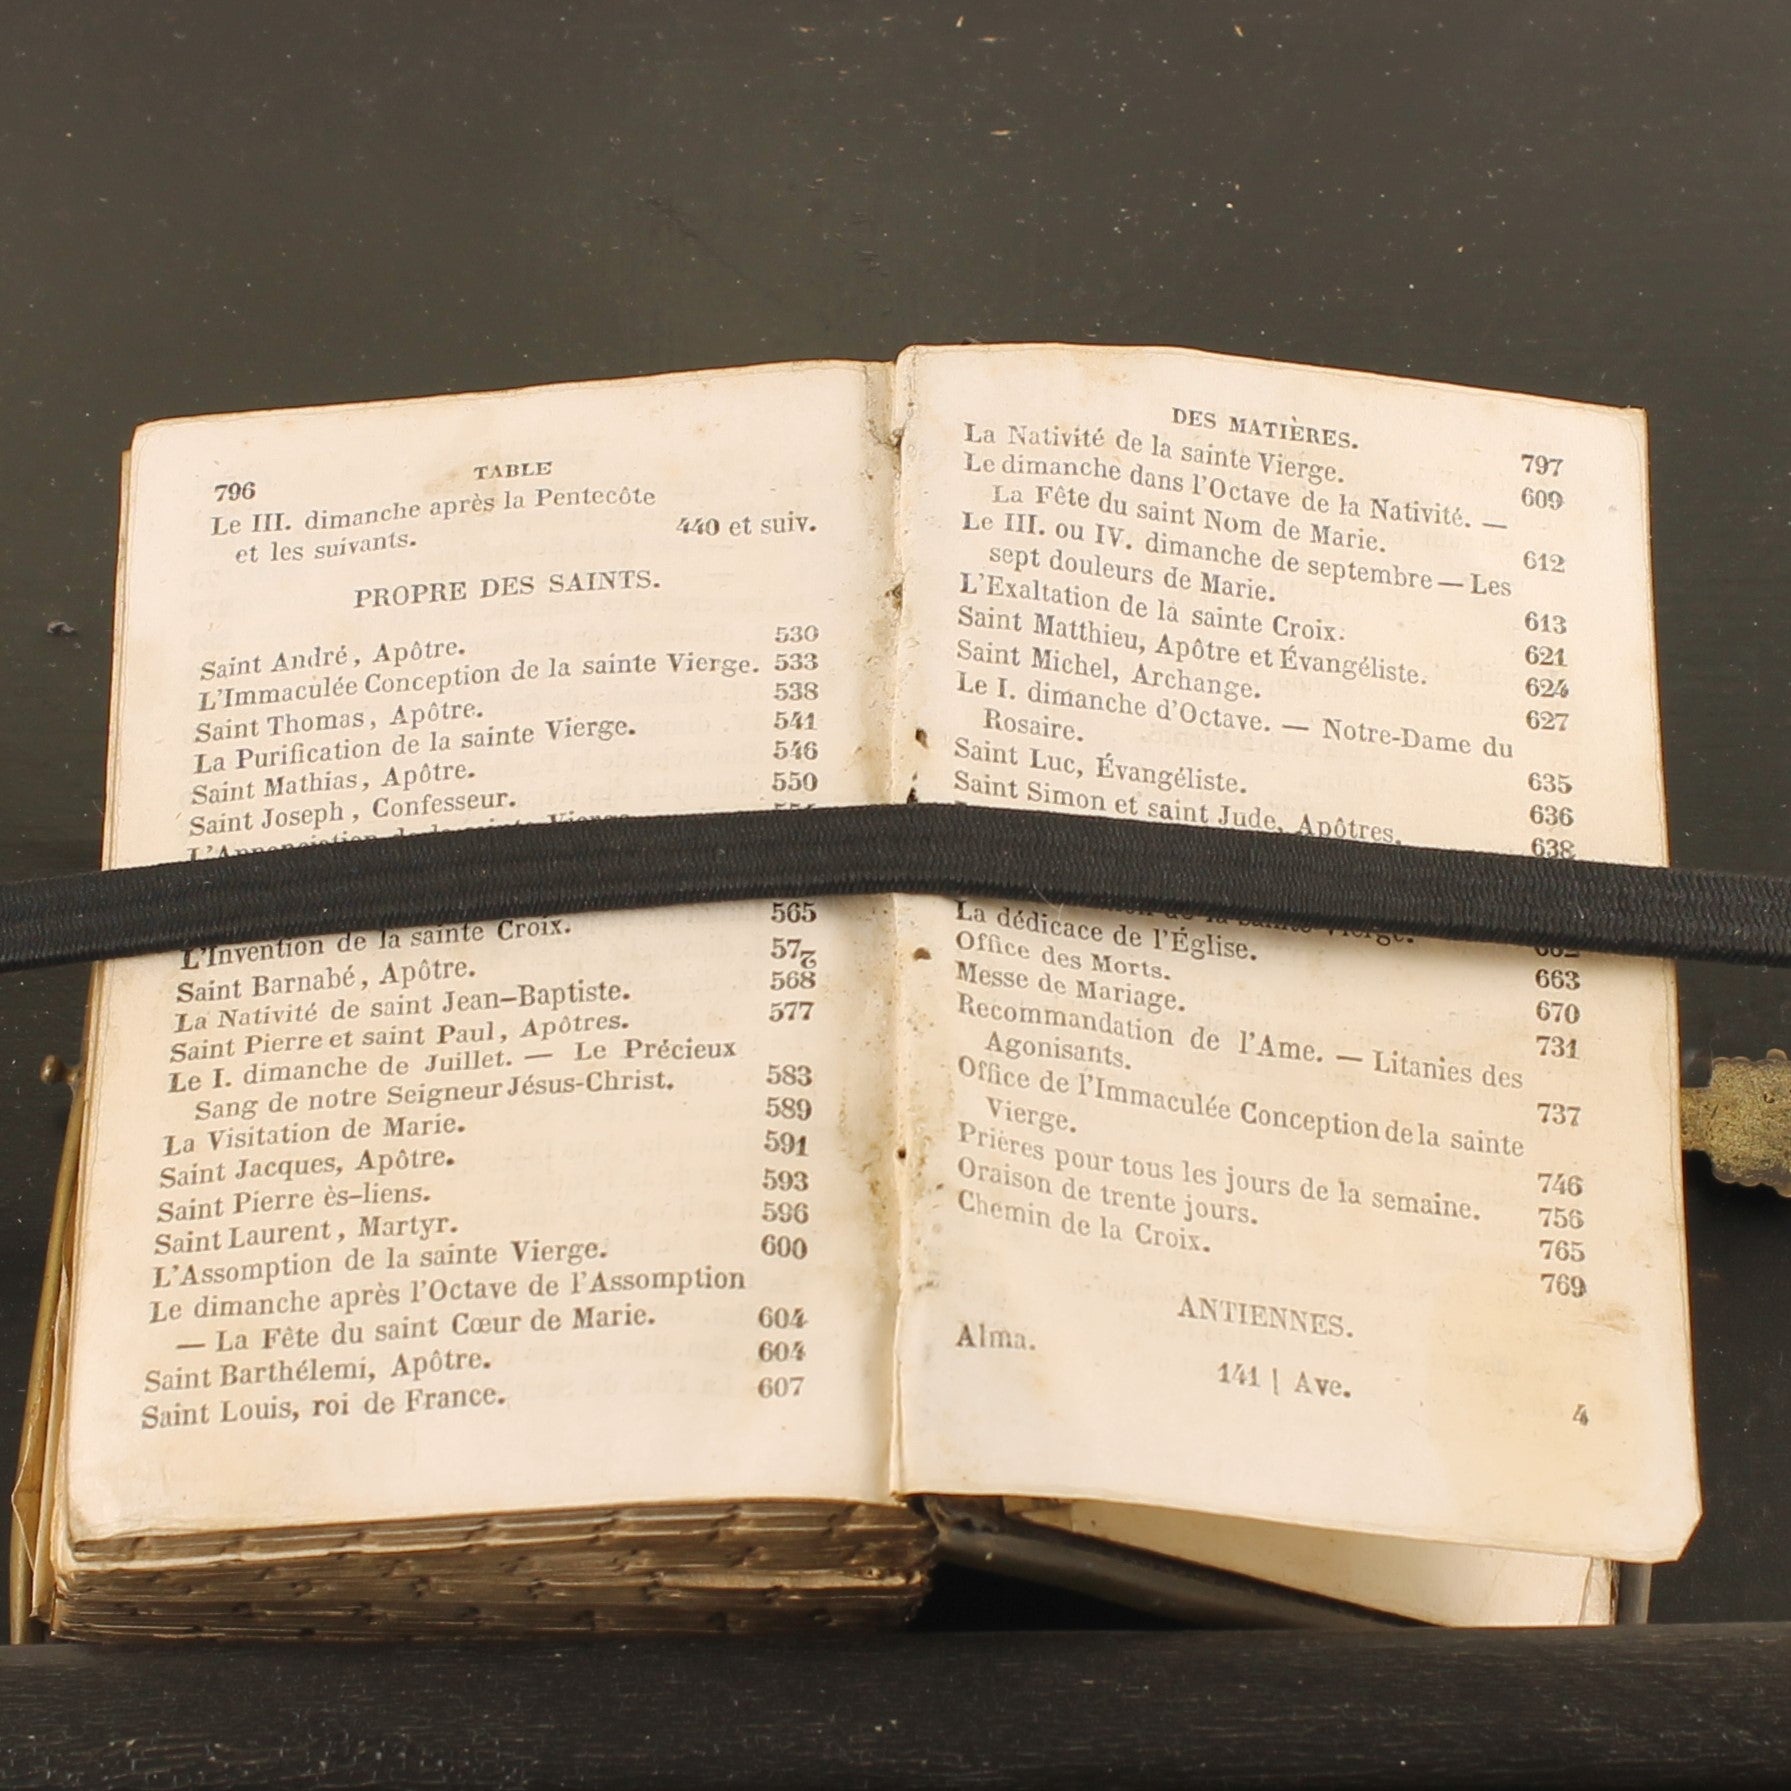 796 TABLE
Le III. dimanche après la Pentecôte
et les suivants. 440 et suiv.
PROPRE DES SAINTS.
Saint André, Apôtre. 530
L'Immaculée Conception de la sainte Vierge. 533
Saint Thomas, Apôtre. 538
La Purification de la sainte Vierge. 541
Saint Mathias, Apôtre. 546
Saint Joseph, Confesseur. 550
L'Annonciation de la sainte Vierge
L'Invention de la sainte Croix. 565
Saint Barnabé, Apôtre. 572
La Nativité de saint Jean-Baptiste. 568
Saint Pierre et saint Paul, Apôtres. 577
Le I. dimanche de Juillet. — Le Précieux
Sang de notre Seigneur Jésus-Christ. 583
La Visitation de Marie. 589
Saint Jacques, Apôtre. 591
Saint Pierre ès-liens. 593
Saint Laurent, Martyr. 596
L'Assomption de la sainte Vierge. 600
Le dimanche après l'Octave de l'Assomption
— La Fête du saint Cœur de Marie. 604
Saint Barthélemi, Apôtre. 604
Saint Louis, roi de France. 607
DES MATIÈRES. 797
La Nativité de la sainte Vierge. 609
Le dimanche dans l'Octave de la Nativité. —
La Fête du saint Nom de Marie. 612
Le III. ou IV. dimanche de septembre — Les
sept douleurs de Marie. 613
L'Exaltation de la sainte Croix. 621
Saint Matthieu, Apôtre et Évangéliste. 624
Saint Michel, Archange. 627
Le I. dimanche d'Octave. — Notre-Dame du
Rosaire. 635
Saint Luc, Évangéliste. 636
Saint Simon et saint Jude, Apôtres. 638
de la sainte Vierge.
La dédicace de l'Église. 663
Office des Morts. 670
Messe de Mariage. 731
Recommandation de l'Ame. — Litanies des
Agonisants. 737
Office de l'Immaculée Conception de la sainte
Vierge. 746
Prières pour tous les jours de la semaine. 756
Oraison de trente jours. 765
Chemin de la Croix. 769
ANTIENNES.
Alma. 141 | Ave. 4